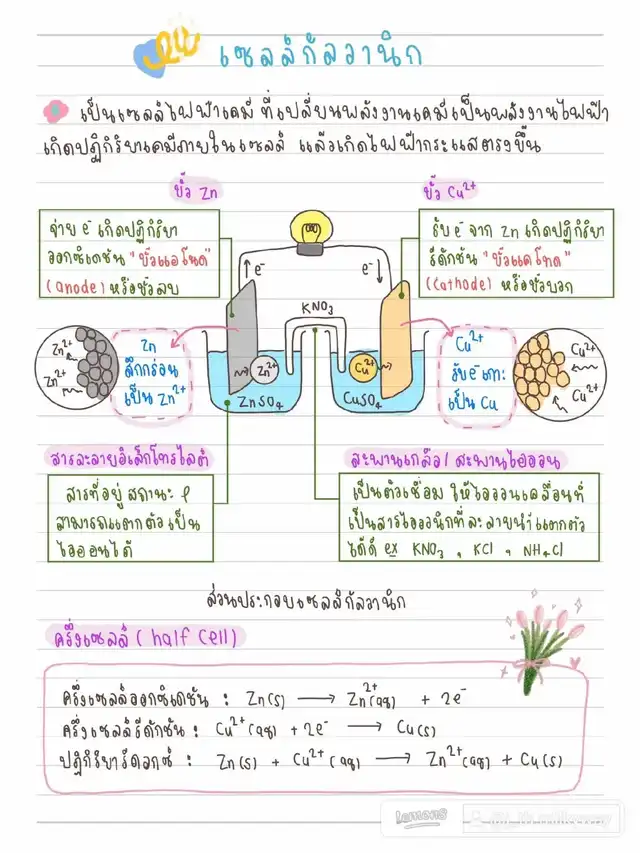 เซลล์กัลวานิก
เป็นเซลล์ไฟฟ้าเคมี ที่เปลี่ยนพลังงานเคมีเป็นพลังงานไฟฟ้า
เกิดปฏิกิริยาเคมีภายในเซลล์ แล้วเกิดไฟฟ้ากระแสตรงขึ้น
ขั้ว Zn
ขั้ว Cu²⁺
จ่าย e⁻ เกิดปฏิกิริยา
ออกซิเดชัน "ขั้วแอโนด"
(anode) หรือขั้วลบ
รับ e⁻ จาก Zn เกิดปฏิกิริยา
รีดักชัน "ขั้วแคโทด"
(cathode) หรือขั้วบวก
↑ e⁻
e⁻ ↓
KNO₃
Zn²⁺
Zn²⁺
Zn
สึกกร่อน
เป็น Zn²⁺
Zn²⁺
ZnSO₄
Cu²⁺
CuSO₄
Cu²⁺
รับ e⁻ เกาะ
เป็น Cu
Cu²⁺
Cu²⁺
สารละลายอิเล็กโทรไลต์
สารที่อยู่ สถานะ l
สามารถแตกตัวเป็น
ไอออนได้
สะพานเกลือ/สะพานไอออน
เป็นตัวเชื่อม ให้ไอออนเคลื่อนที่
เป็นสารไอออนิกที่ละลายน้ำแตกตัว
ได้ดี ex KNO₃ , KCl , NH₄Cl
ส่วนประกอบเซลล์กัลวานิก
ครึ่งเซลล์ (half cell)
ครึ่งเซลล์ออกซิเดชัน : Zn(s) ⟶ Zn²⁺(aq) + 2e⁻
ครึ่งเซลล์รีดักชัน : Cu²⁺(aq) + 2e⁻ ⟶ Cu(s)
ปฏิกิริยารีดอกซ์ : Zn(s) + Cu²⁺(aq) ⟶ Zn²⁺(aq) + Cu(s)
lemon8